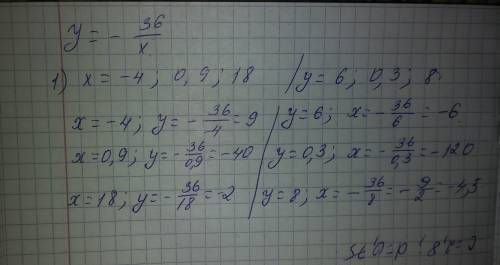 y = - 36/x
1) x = -4 ; 0,9 ; 18 / y = 6 ; 0,3 ; 8
x = -4 ; y = - 36/-4 = 9 / y = 6 ; x = - 36/6 = -6
x = 0,9 ; y = - 36/0,9 = -40 / y = 0,3 ; x = - 36/0,3 = -120
x = 18 ; y = - 36/18 = -2 / y = 8 ; x = - 36/8 = - 9/2 = -4,5